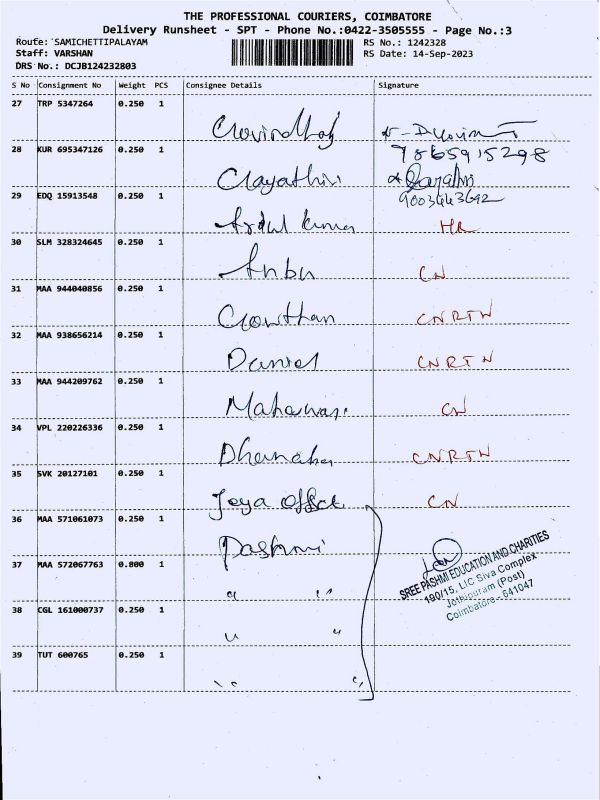 THE PROFESSIONAL COURIERS, COIMBATORE
Delivery Runsheet - SPT - Phone No.:0422-3505555 - Page No.:3
Route: SAMICHETTIPALAYAM RS No.: 1242328
Staff: VARSHAN RS Date: 14-Sep-2023
DRS No.: DCJB124232803
S No Consignment No Weight PCS Consignee Details Signature
27 TRP 5347264 0.250 1
Govindhaj
28 KUR 695347126 0.250 1 7865915298
Gayathri Gayathri
29 EDQ 15913548 0.250 1 9003443692
kumar HR
30 SLM 328324645 0.250 1
Anbu CN
31 MAA 944040856 0.250 1
Gowthan CNRTN
32 MAA 938656214 0.250 1
Daniel CNRTN
33 MAA 944209762 0.250 1
CN
34 VPL 220226336 0.250 1
CNRTN
35 SVK 20127101 0.250 1
Jeya office CN
36 MAA 571061073 0.250 1
Pashmi
37 MAA 572067763 0.800 1
" "
38 CGL 161000737 0.250 1
" "
39 TUT 600765 0.250 1
" "
SREE PASHMI EDUCATION AND CHARITIES
190/15, LIC Siva Complex
Jothipuram (Post)
Coimbatore - 641047